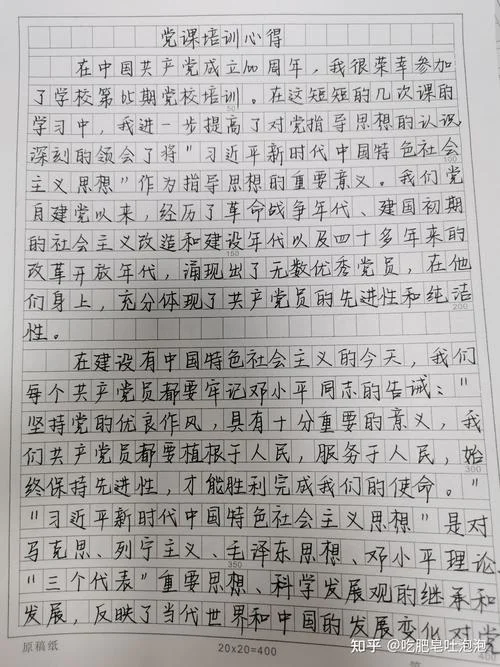 党课培训心得
在中国共产党成立100周年，我很荣幸参加
了学校第65期党校培训。在这短短的几次课的
学习中，我进一步提高了对党指导思想的认识
深刻的领会了将"习近平新时代中国特色社会
主义思想"作为指导思想的重要意义。我们党
自建党以来，经历了革命战争年代、建国初期
的社会主义改造和建设年代以及四十多年来的
改革开放年代，涌现出了无数优秀党员，在他
们身上，充分体现了共产党员的先进性和纯洁
性。
在建设有中国特色社会主义的今天，我们
每个共产党员都要牢记邓小平同志的告诫："
坚持党的优良作风，具有十分重要的意义，我
们共产党员都要植根于人民，服务于人民，始
终保持先进性，才能胜利完成我们的使命。"
"习近平新时代中国特色社会主义思想"是对
马克思、列宁主义、毛泽东思想、邓小平理论
"三个代表"重要思想、科学发展观的继承和
发展，反映了当代世界和中国的发展变化对党
50
100
150
200
300
350
400
原稿纸
20×20=400
知乎 @吃肥皂吐泡泡